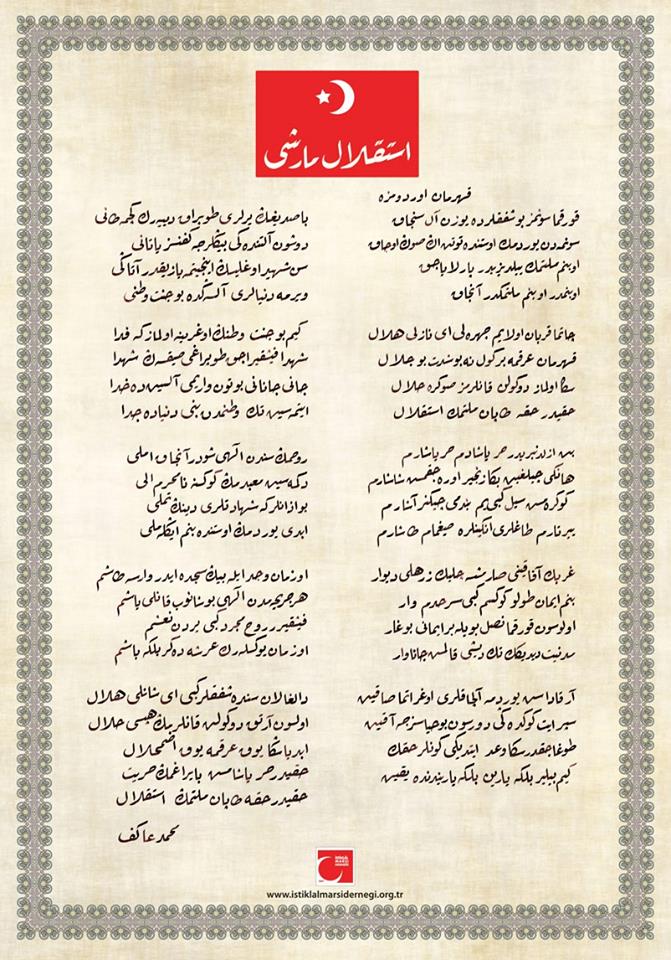 استقلال مارشی
قهرمان اوردومزه
قورقما سونمز بو شفقلرده یوزن آل سنجاق
سونمدن یوردمك اوستنده توتن اڭ صوڭ اوجاق
او بنم ملتمك ییلدیزیدر پارلایاجق
او بنمدر او بنم ملتمكدر آنجاق
چاتما قربان اولایم چهره‌ڭی ای نازلی هلال
قهرمان عرقمه بر كول نه بو شدت بو جلال
سڭا اولماز دوكولن قانلرمز صوكره حلال
حقیدر حقه طاپان ملتمڭ استقلال
بن ازلدنبریدر حر یاشادم حر یاشارم
هانكی چیلغین بڭا زنجیر اوره‌جقمش شاشارم
كوكره‌مش سیل كبی‌یم بندمی چیكنر آشارم
ییرتارم طاغلری انكینلره صیغمام طاشارم
غربڭ آفاقنی صارمشسه چلیك زرهلی دیوار
بنم ایمان طولو كوكسم كبی سرحدم وار
اولوسون قورقما نصل بویله بر ایمانی بوغار
مدنیت دیدیكڭ تك دیشی قالمش جاناوار
آرقاداش یوردمه آلچاقلری اوغراتما صاقین
سپر ایت كوكده‌ڭی دورسون بو حیاسزجه آقین
طوغاجقدر سڭا وعد ایتدیكی كونلر حقڭ
كیم بیلیر بلكه یارین بلكه یاریندنده یقین
باصدیغڭ یرلری طوپراق دییه‌رك كچمه طانی
دوشون آلتنده‌كی بیڭلرجه كفنسز یاتانی
سن شهید اوغلیسڭ اینجیتمه یازیقدر آتاڭی
ویرمه دنیالری آلسه‌ڭده بو جنت وطنی
كیم بو جنت وطنڭ اوغرینه اولماز كه فدا
شهدا فیشقیراجق طوپراغی صیقسه‌ڭ شهدا
جانی جانانی بوتون واریمی آلسین ده خدا
ایتمه‌سین تك وطنمدن بنی دنیاده جدا
روحمڭ سندن الهی شودر آنجاق املی
دكمه‌سین معبدمڭ كوكسنه نامحرم الی
بو اذانلر كه شهادتلری دینڭ تملی
ابدی یوردمڭ اوستنده بنم ایڭله‌ملی
او زمان وجد ایله بیڭ سجده ایدر وارسه طاشم
هر جریحه‌مدن الهی بوشانوب قانلی یاشم
فیشقیرر روح مجرد كبی یردن نعشم
او زمان یوكسله‌رك عرشه دكر بلكه باشم
دالغالان سنده شفقلر كبی ای شانلی هلال
اولسون آرتق دوكولن قانلریمڭ هپسی حلال
ابدیا سڭا یوق عرقمه یوق اضمحلال
حقیدر حر یاشامش بایراغمڭ حریت
حقیدر حقه طاپان ملتمڭ استقلال
محمد عاكف
İSTİKLAL MARŞI DERNEĞİ
www.istiklalmarsidernegi.org.tr